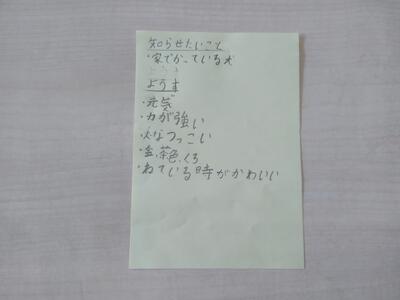 知らせたいこと
・家でかっている犬
ようす
・元気
・力が強い
・人なつっこい
・金、茶色、くろ
・ねている時がかわいい